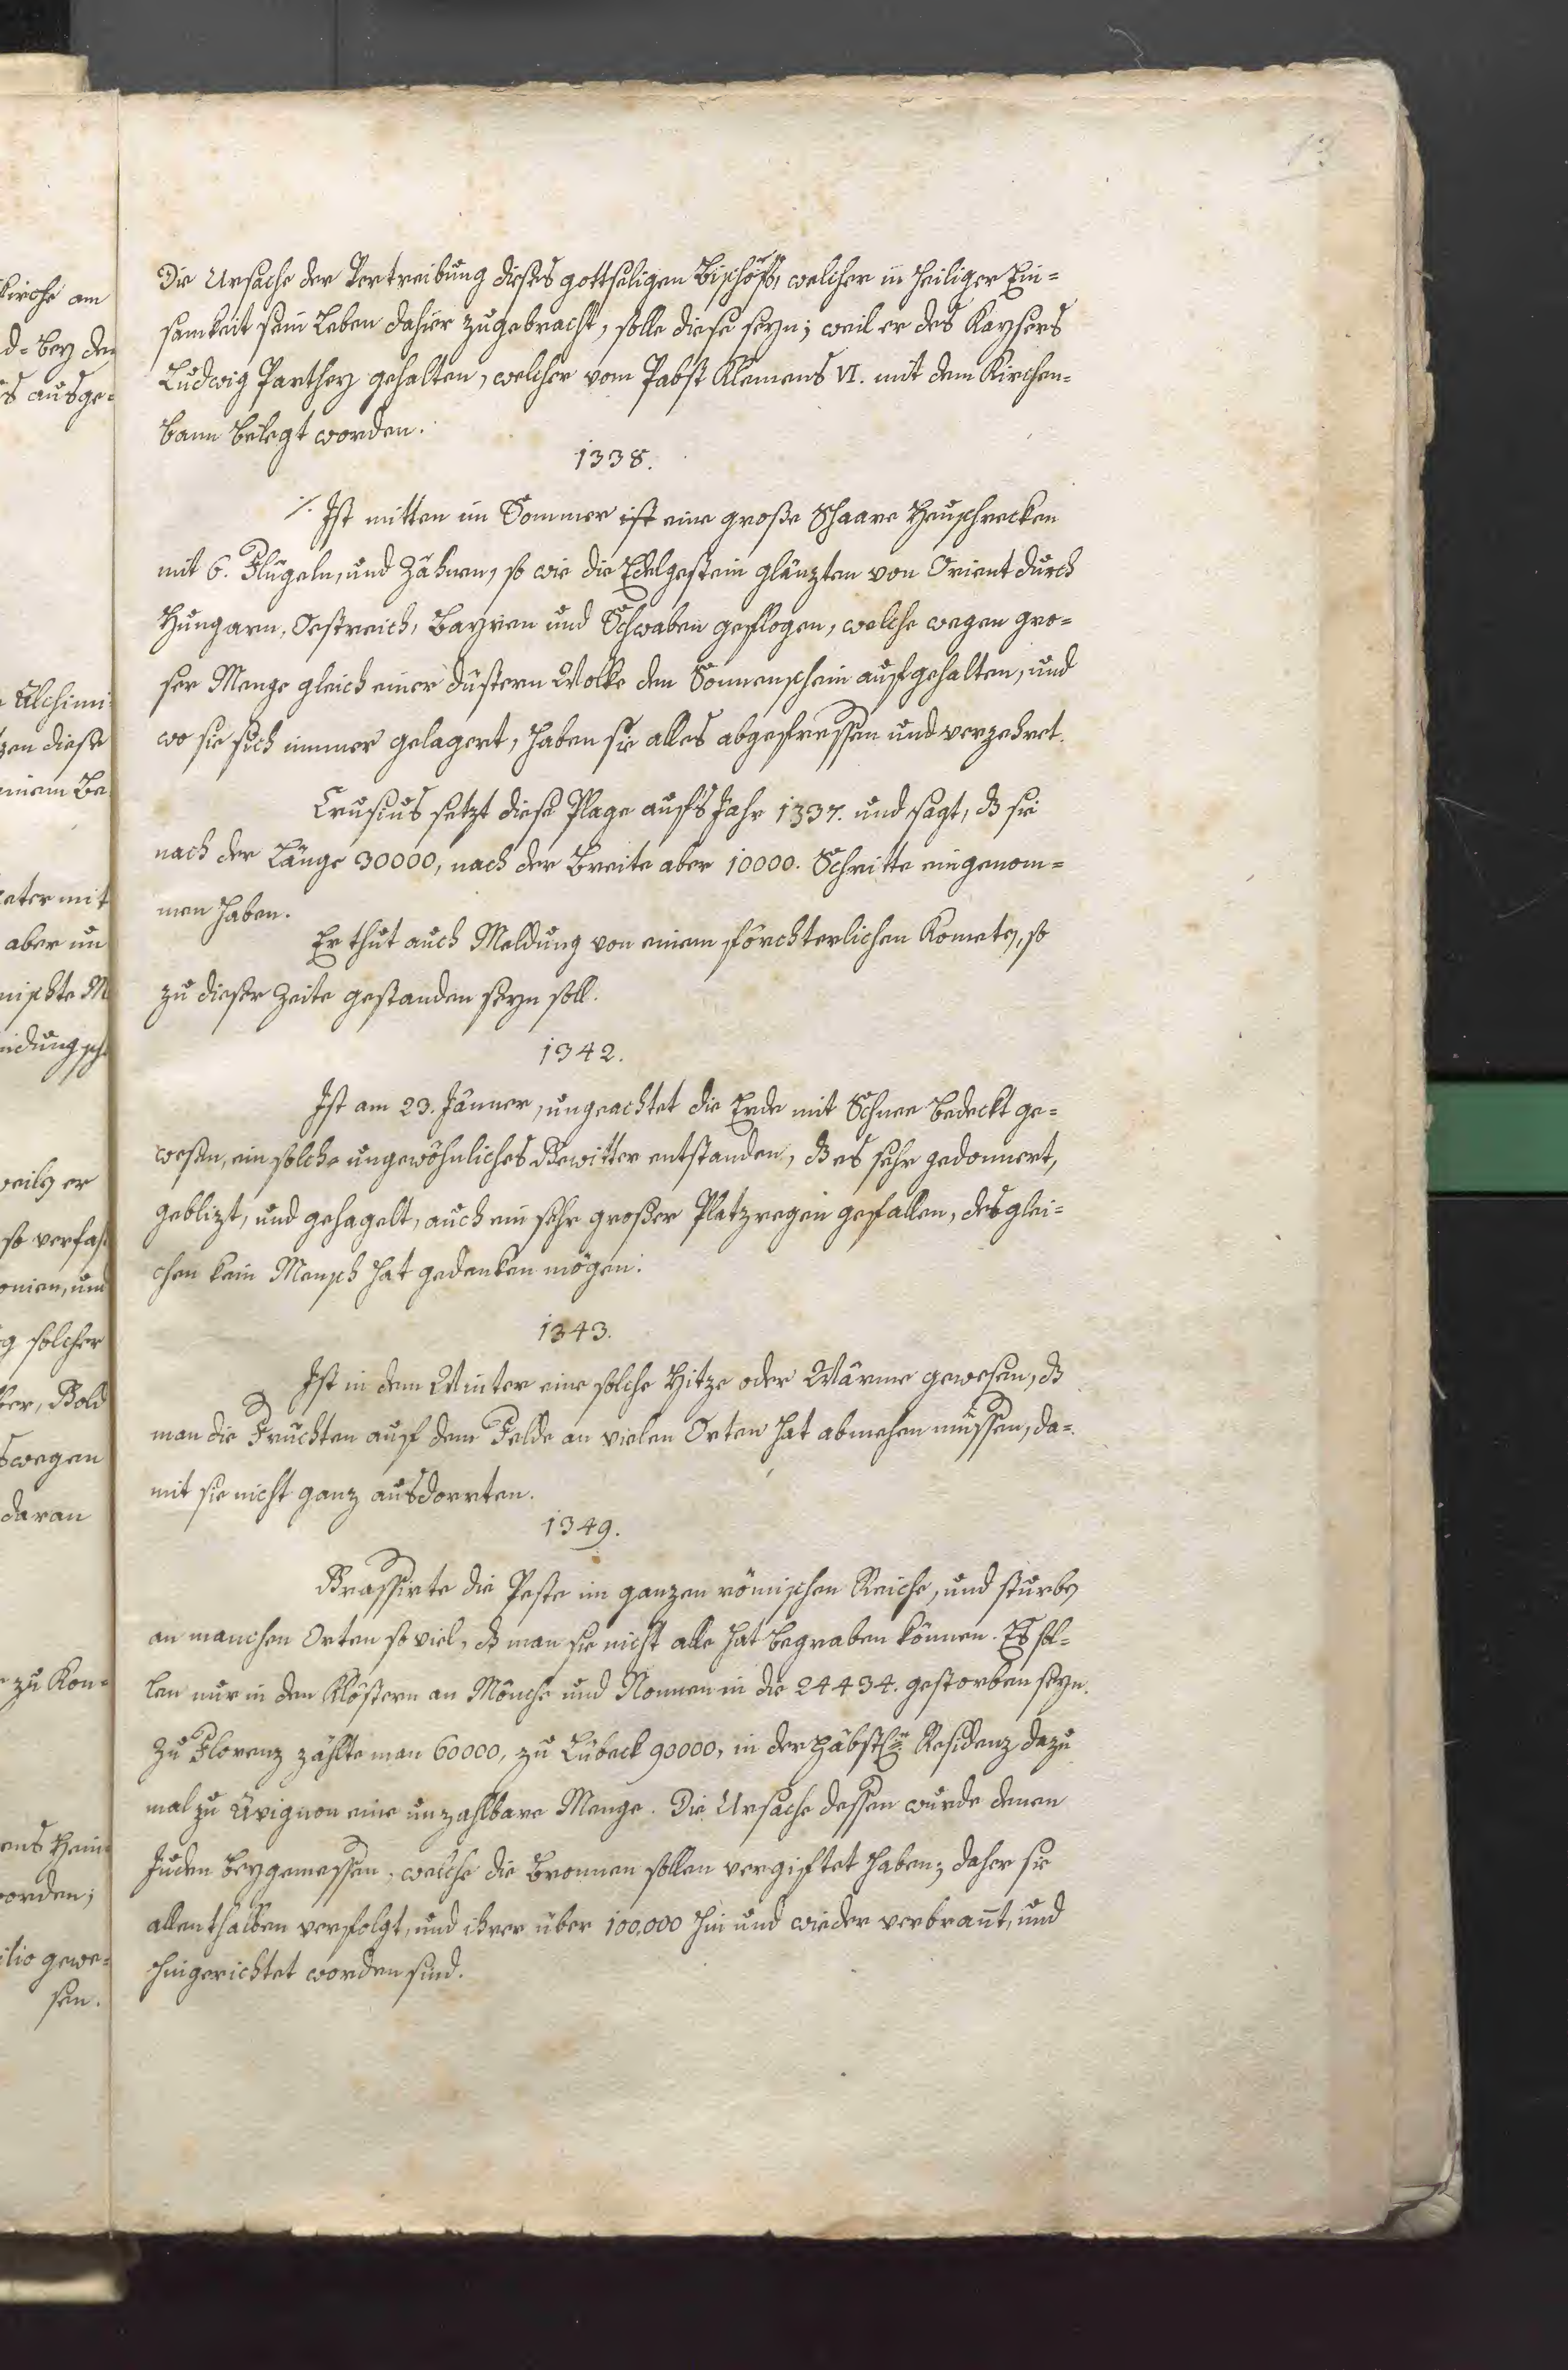 13
Die Ursache der Vertreibung dieses gottseligen Bischofs, welcher in heiliger Ein=
samkeit sein Leben dahier zugebracht, solle diese seyn; weil er des Kaysers
Ludwig Parthey gehalten, welcher vom Pabst Klemens VI. mit dem Kirchen=
bann belegt worden.
1338.
Ist mitten im Sommer ist eine große Schaare Heuschrecken
mit 6. Flügeln, und Zähnen, so wie die Edelgestein glänzten von Orient durch
Hungarn, Oestreich, Bayren und Schwaben geflogen, welche wegen gro=
ser Menge gleich einer düstern Wolke den Sonnenschein aufgehalten, und
wo sie sich immer gelagert, haben sie alles abgefressen und verzehret.
Crusius setzt diese Plage aufs Jahr 1337. und sagt, dß sie
nach der Länge 30000, nach der Breite aber 10000. Schritte eingenom=
men haben.
Er thut auch Meldung von einem förchterlichen Kometen, so
zu dieser Zeite gestanden seyn soll.
1342.
Ist am 23. Jänner, ungeachtet die Erde mit Schnee bedeckt ge=
wesen, ein solch=ungewöhnliches Gewitter entstanden, dß es sehr gedonnert,
geblizt, und gehagelt, auch ein sehr großer Platzregen gefallen, desglei=
chen kein Mensch hat gedenken mögen.
1343.
Ist in dem Winter eine solche Hitze oder Wärme gewesen, dß
man die Früchten auf dem Felde an vielen Orten hat abmehen müssen, da=
mit sie nicht ganz ausdorrten.
1349.
Grassirte die Peste im ganzen römischen Reiche, und sturben
an manchen Orten so viel, dß man sie nicht alle hat begraben können. Es sol=
len nur in den Klöstern an Mönche und Nonnen in die 24434. gestorben seyn.
Zu Florenz zählte man 60000, zu Lübeck 90000, in der päbstln Residenz dazu
mal zu Avignon eine unzahlbare Menge. Die Ursache dessen wurde denen
Juden beygemessen, welche die Bronnen sollen vergiftet haben; daher sie
allenthalben verfolgt, und ihrer über 100,000 hin und wieder verbrant, und
hingerichtet worden sind.